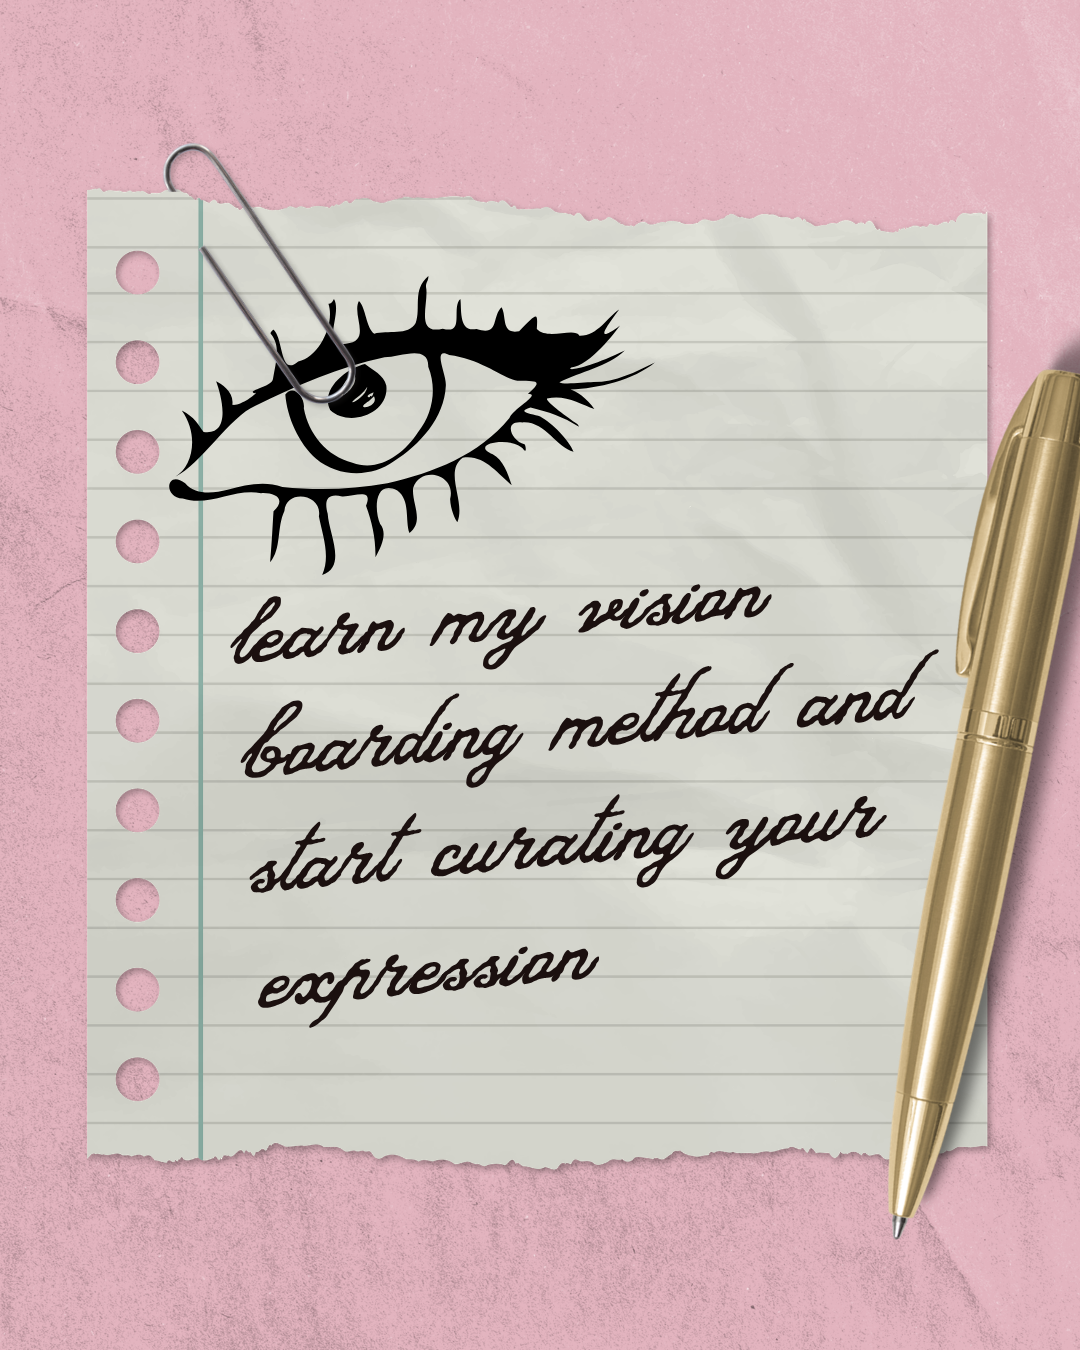 learn my vision
boarding method and
start curating your
expression